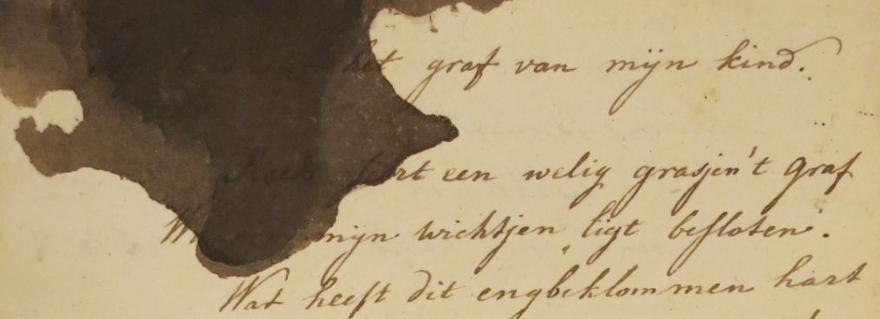 het graf van mijn kind.
een welig grasjen't graf
mijn wichtjen ligt besloten.
Wat heeft dit engbeklommen hart